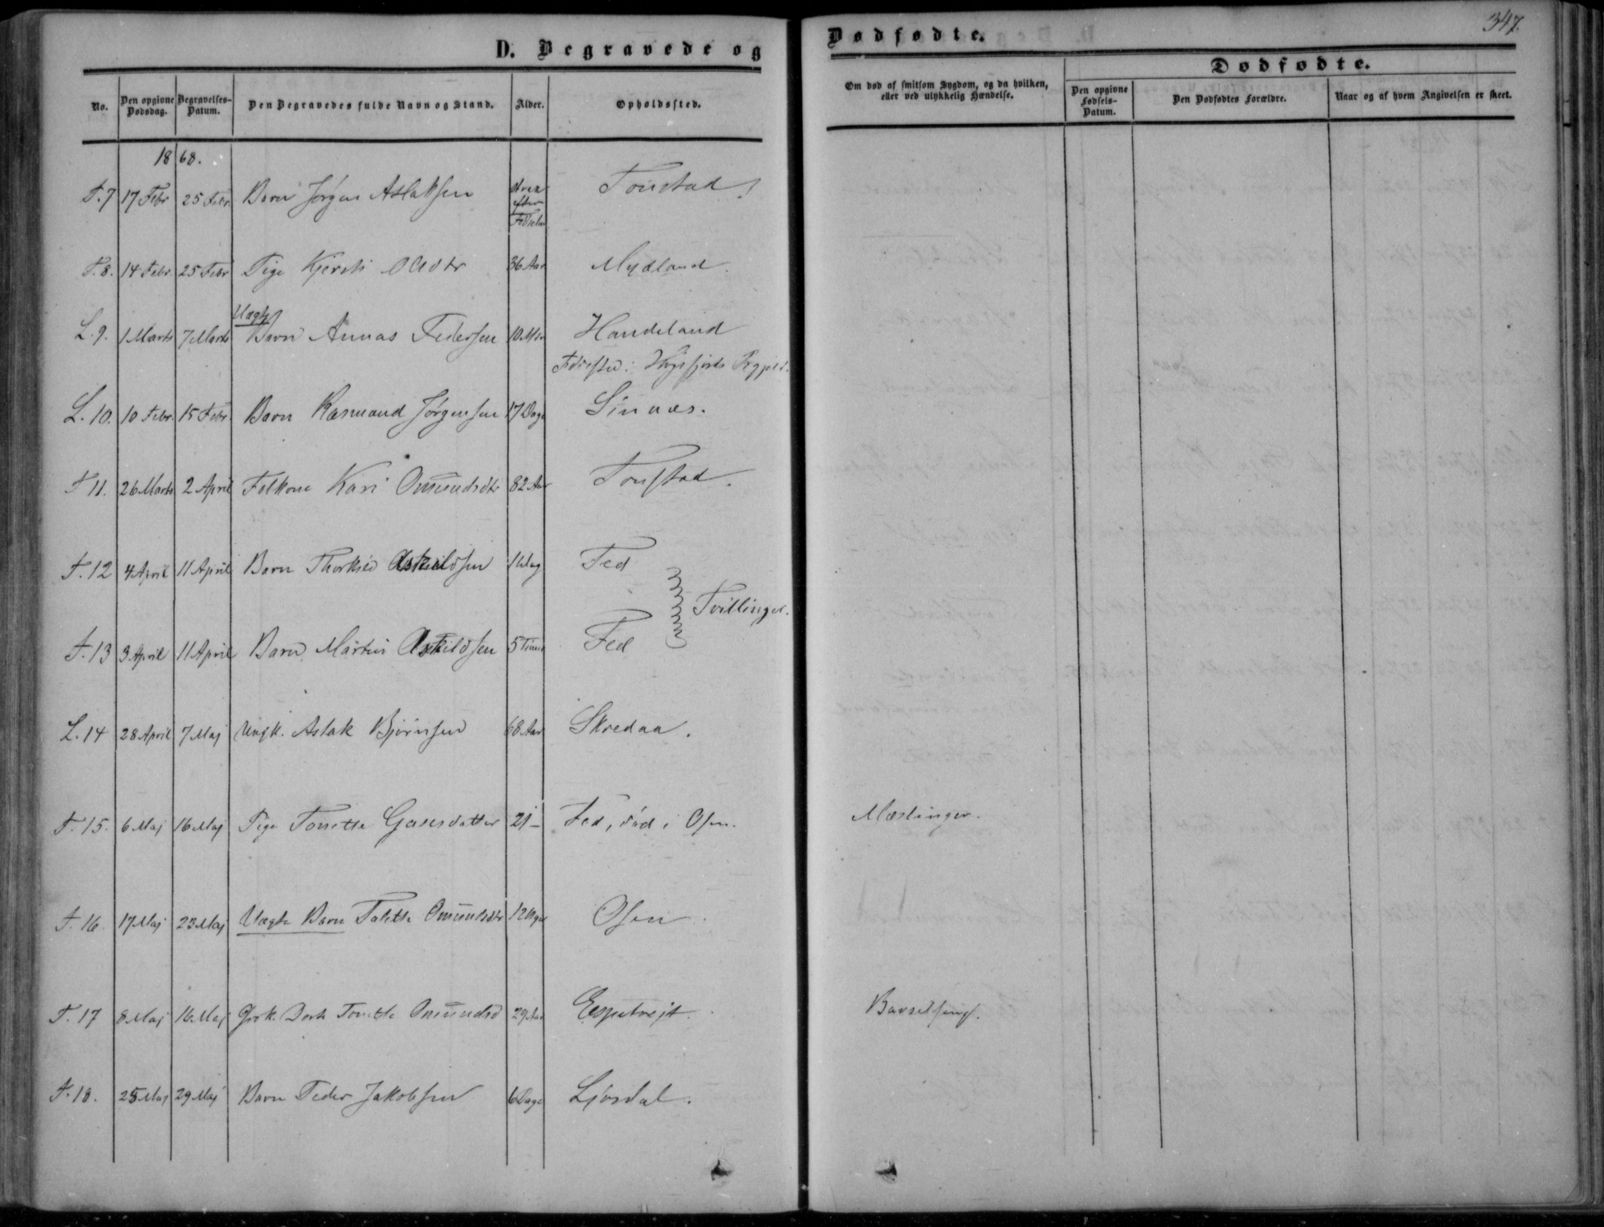 347.
D. Begravede og Dødfødte.
No. Den opgivne Dødsdag. Begravelses-Datum. Den Begravedes fulde Navn og Stand. Alder. Opholdssted. Om død af smitsom Sygdom, og da hvilken, eller ved ulykkelig Hændelse. Dødfødte.
Den opgivne Fødsels-Datum. Den Dødfødtes Forældre. Naar og af hvem Angivelsen er skeet.
1868.
T. 7 17 Febr 25 Febr Barn Jørgen Aslaksen strax efter Fødselen Tonstad
T. 8. 14 Febr. 25 Febr Pige Kjersti Olsdtr 36 Aar Mydland.
Uægte
L. 9. 1 Marts 7 Marts Barn Annas Pedersen 10 Mdr Handeland
Fødested: Høgsfjords Prgjæld.
L. 10. 10 Febr. 15 Febr. Barn Rasmund Jørgensen 17 Dage Sinnæs.
T 11. 26 Marts 2 April Følkone Kari Omundsdtr 82 Aar Tonstad.
T. 12 4 April 11 April Barn Thorkild Askildsen 1 Dag Fed
Tvillinger.
T. 13 3 April 11 April Barn Martin Askildsen 5 Timer Fed
L. 14 28 April 7 Maj Ungk. Aslak Bjørnsen 68 Aar Skredaa.
T. 15. 6 Maj 16 Maj Pige Tonette 21 – Fed, død i Osen. Mæslinger.
T. 16. 17 Maj 23 Maj Uægte Barn Talette Omundsdtr 12 Uger Osen
T. 17 8 Maj 16 Maj Tonette Omundsd 29 Aar Espetvejt. Barselseng.
T. 18. 25 Maj 29 Maj Barn Peder Jakobsen 6 Dage Ljosdal.